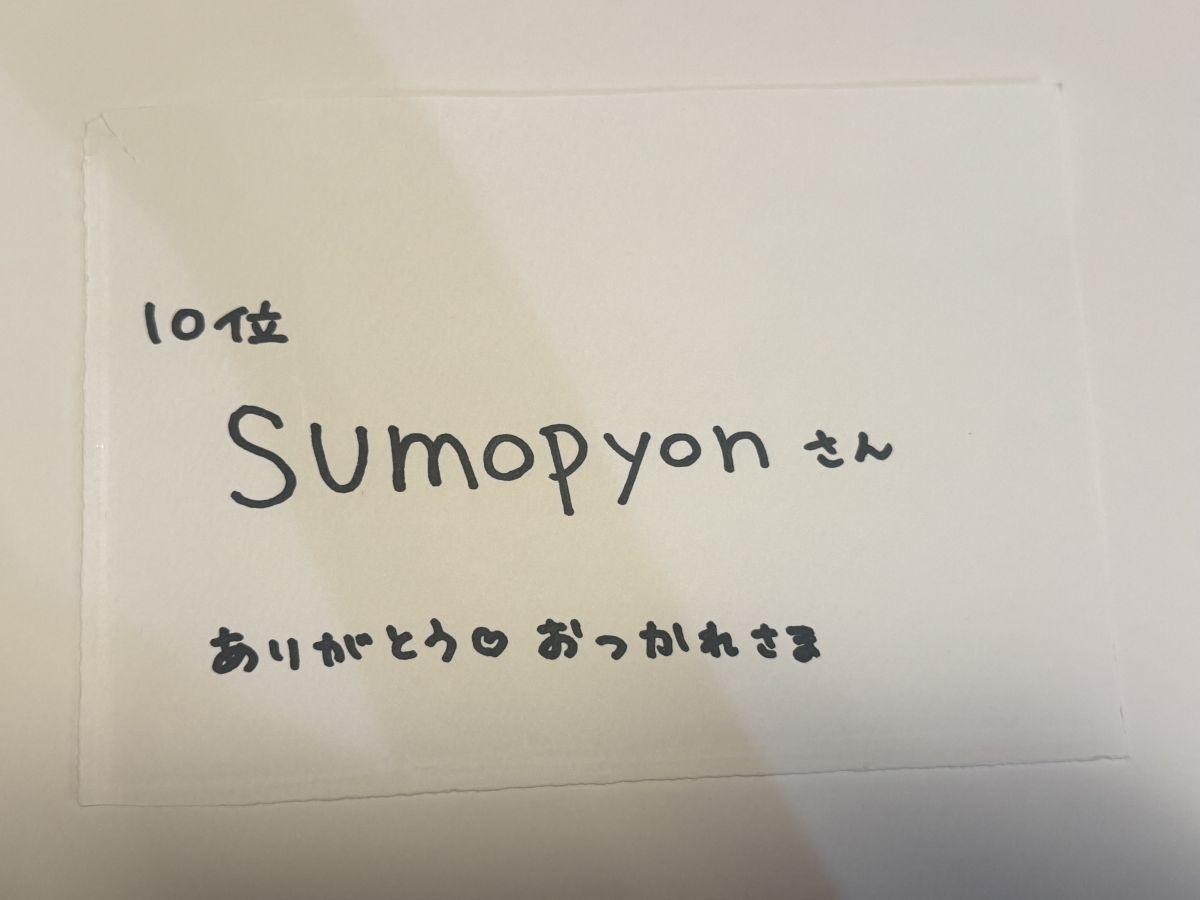 10位
Sumopyonさん
ありがとう♡おつかれさま